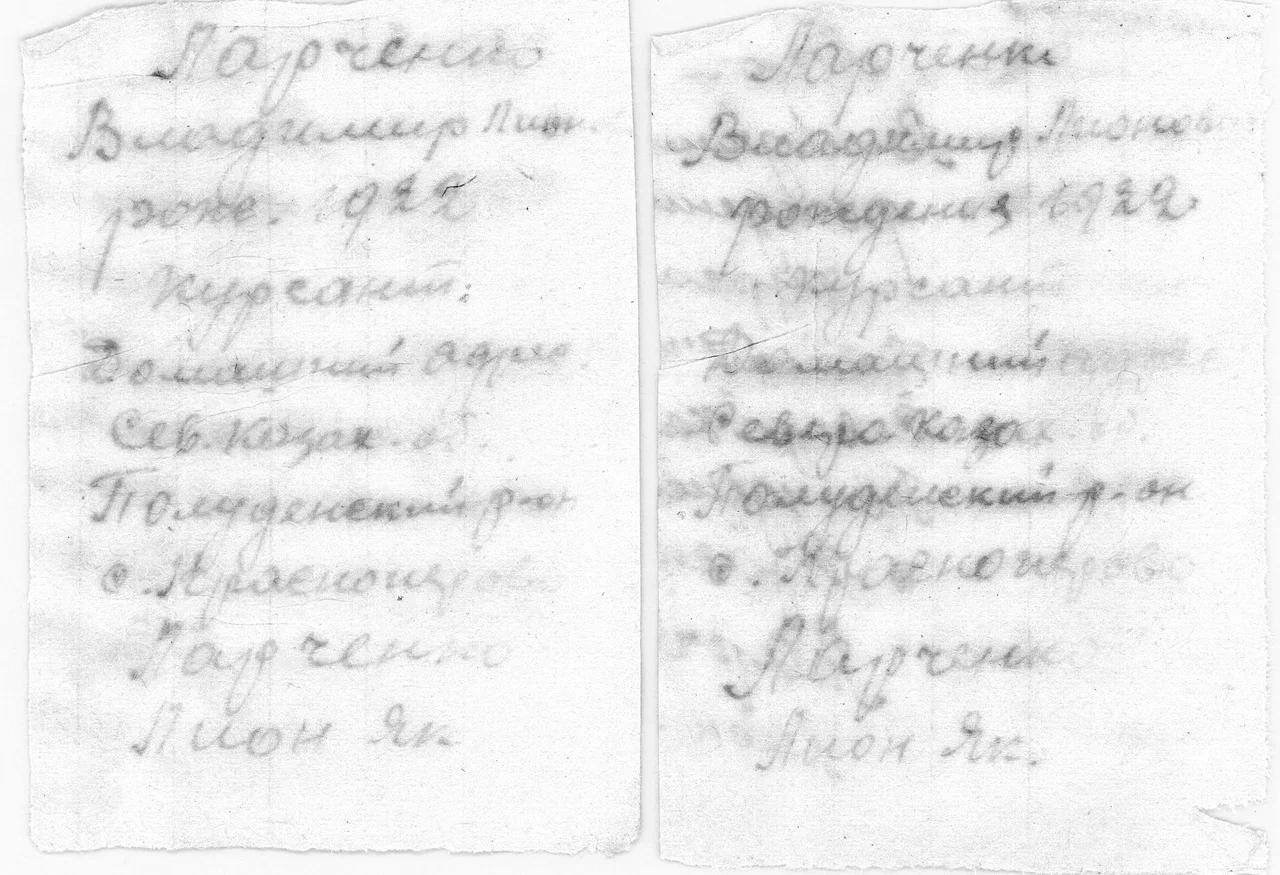 Ларченко
Владимир Лион.
рожд. 1922
Курсант.
Домашний адрес.
Сев. Казак. об.
Полуденский р-он
с. Красноперово
Ларченко
Лион Як
Ларченко
Владимир Лионов
рождения 1922
Курсант
Домашний
Северо Казак. об.
Полуденский р-он
с. Красноперово
Ларченко
Лион Як.